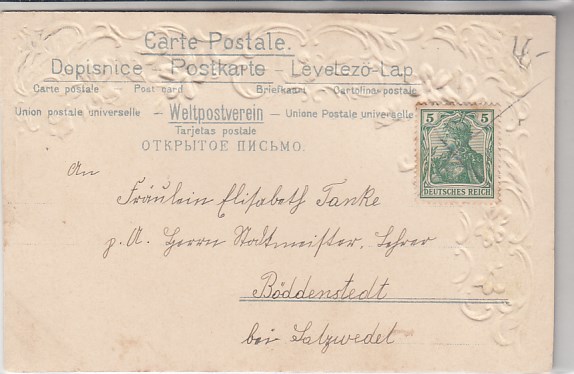 Carte Postale.
Dopisnice – Postkarte – Levelező-Lap
Carte postale Post card Briefkaart Cartolina postale
Union postale universelle – Weltpostverein – Unione Postale universelle
Tarjetas postale
ОТКРЫТОЕ ПИСЬМО.
5 5
DEUTSCHES REICH
An
Fräulein Elisabeth Tanke
p. A. Herrn Stattmeister, Lehrer
Böddenstedt
bei Salzwedel